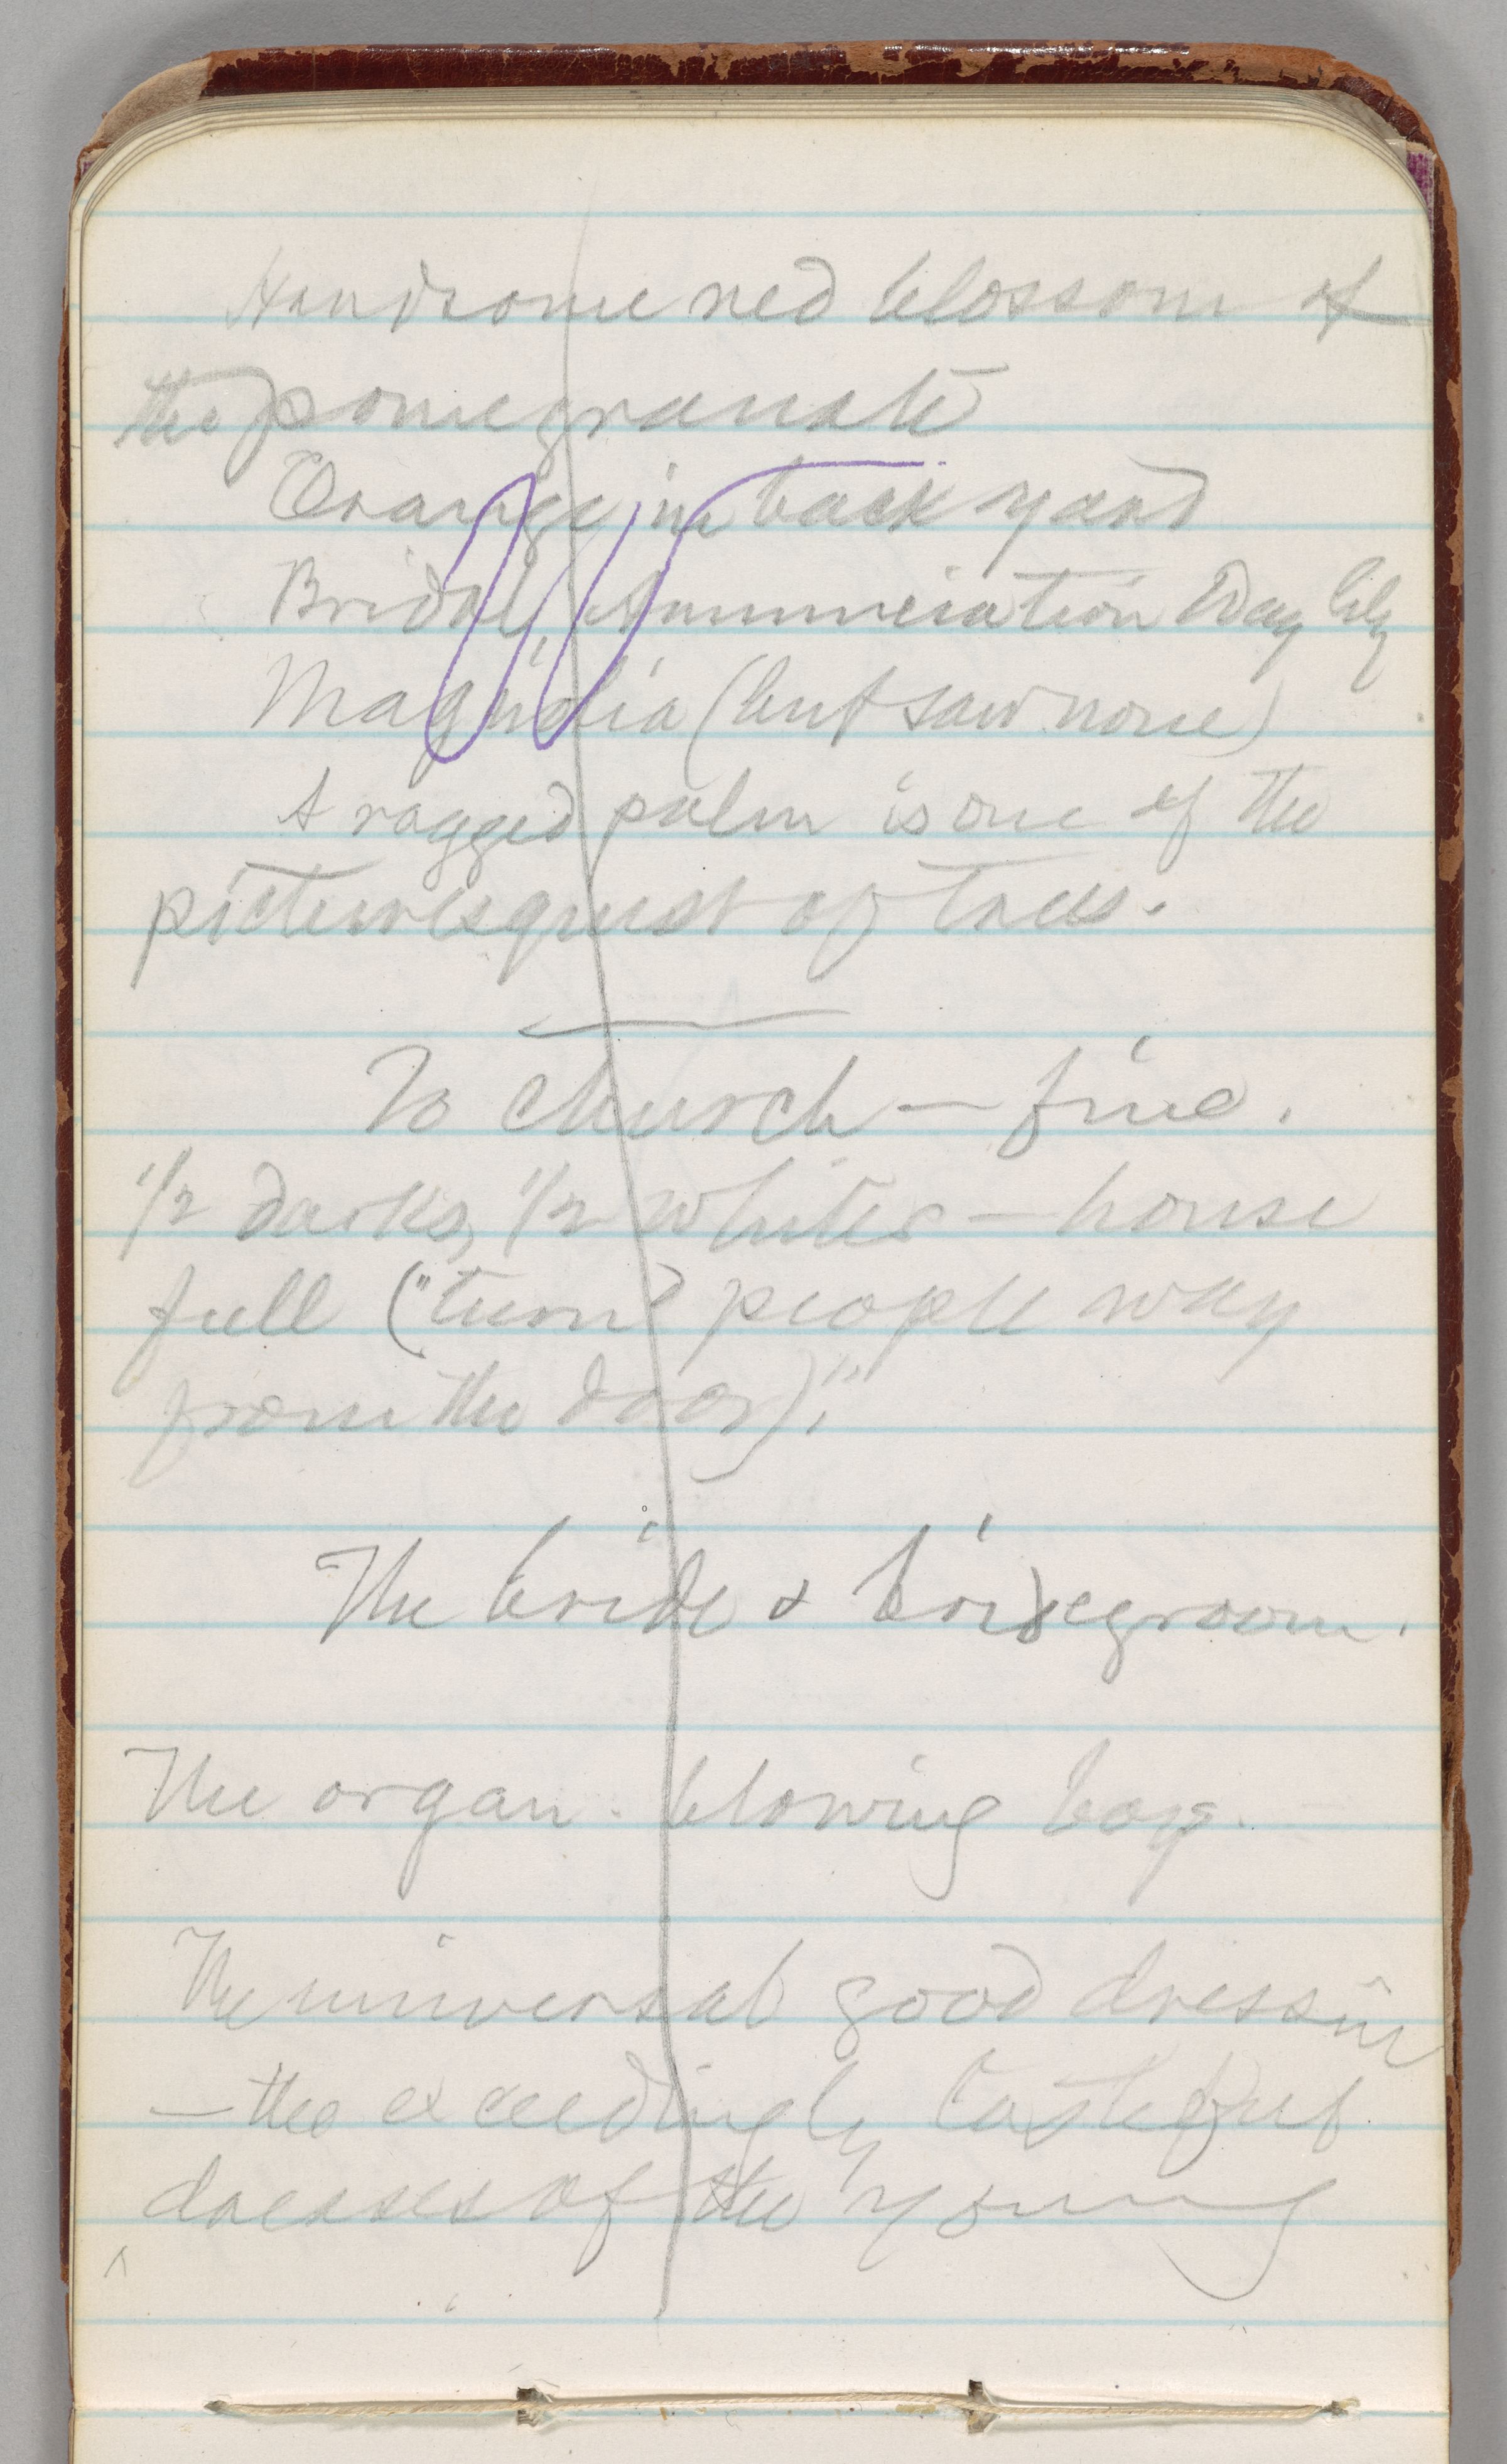 Handsome red blossom of
the pomegranate
Orange in back yard
Bridal, Annunciation Day lily
Magnolia (but saw none)
A ragged palm is one of the
picturesquest of trees.
To church — fine.
1/2 darks, 1/2 whites — house
full ("turn? people way
from the door)."
The bride & bridegroom.
The organ. blowing boy.
The universal good dressin
— the exceedingly tasteful
dresses of the young